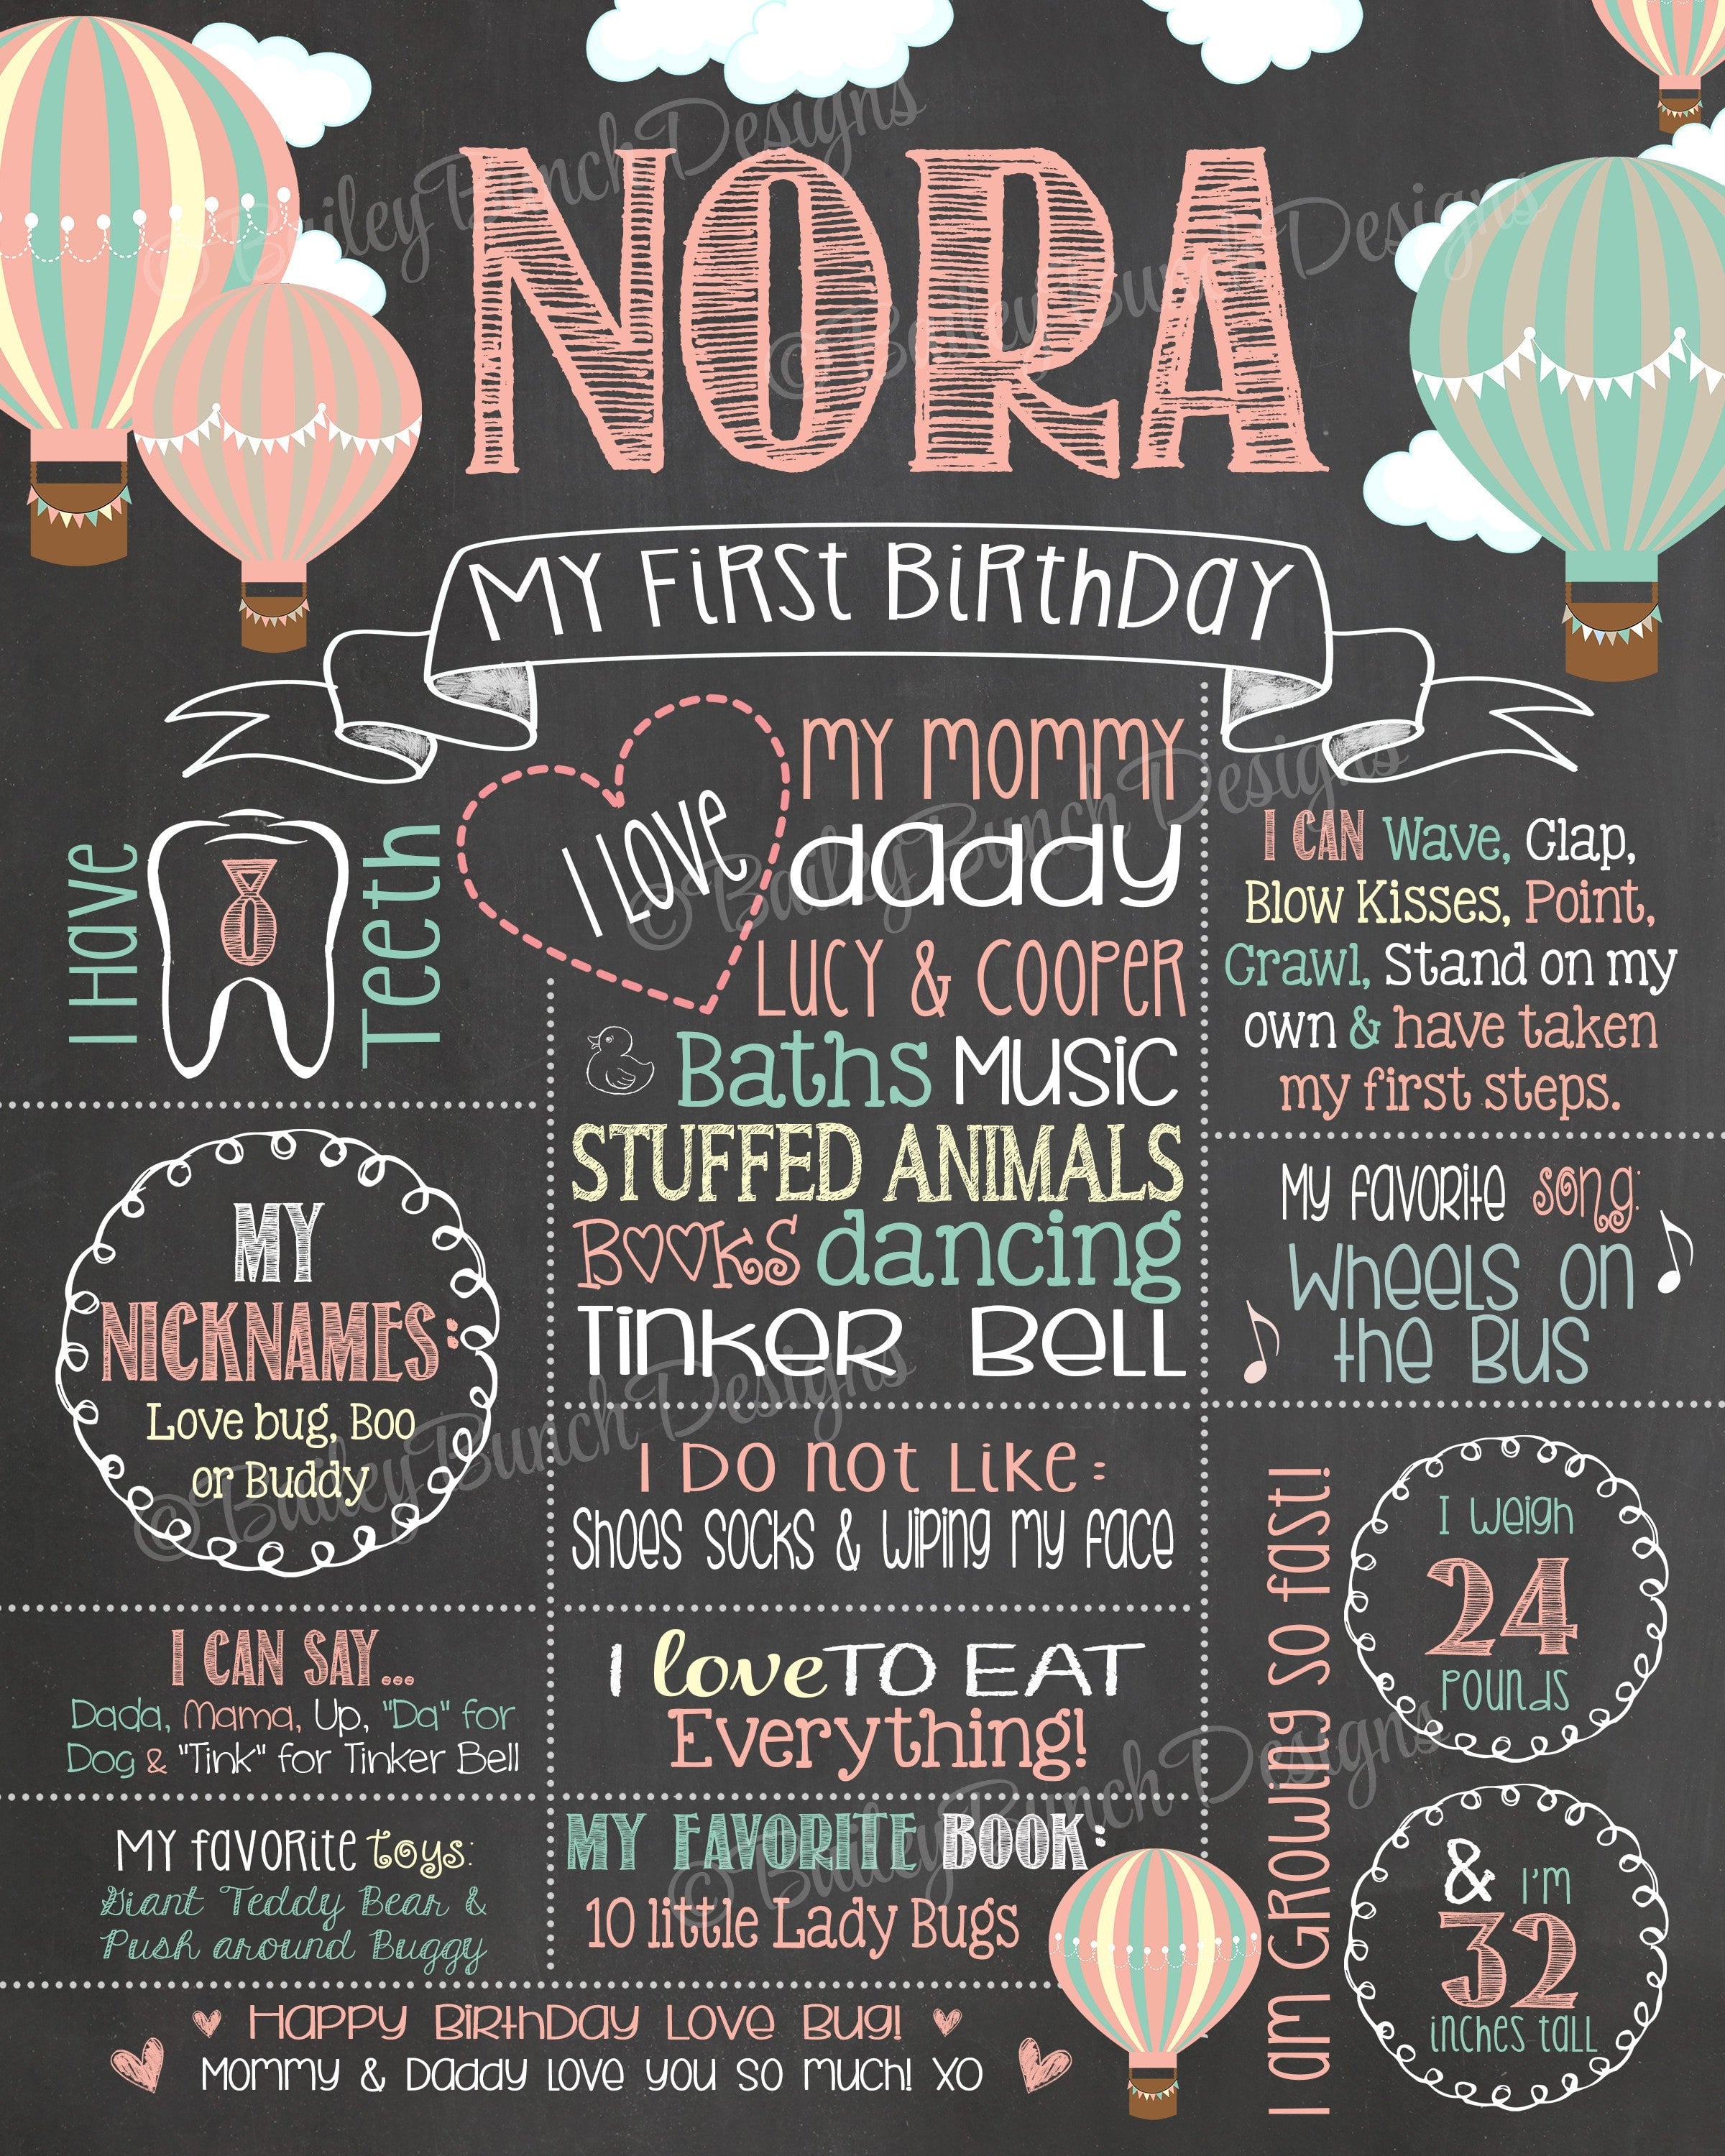 NORA
MY FIRST BIRTHDAY
I Have
8
Teeth
I LOVE
MY MOMMY
daddy
LUCY & COOPER
Baths MUSIC
STUFFED ANIMALS
BOOKS dancing
TINKER BELL
I CAN Wave, Clap,
Blow Kisses, Point,
Crawl, Stand on my
own & have taken
my first steps.
MY
NICKNAMES:
Love bug, Boo
or Buddy
My favorite song:
Wheels on
the Bus
I Do not Like:
Shoes socks & wiping my face
I CAN SAY...
Dada, Mama, Up, "Da" for
Dog & "Tink" for Tinker Bell
I love TO EAT
Everything!
My favorite toys:
Giant Teddy Bear &
Push around Buggy
MY FAVORITE BOOK:
10 little Lady Bugs
I am Growing so fast!
I weigh
24
pounds
& I'm
32
inches tall
Happy Birthday Love Bug!
Mommy & Daddy love you so much! XO
© Bailey Bunch Designs
© Bailey Bunch Designs
© Bailey Bunch Designs
© Bailey Bunch Designs
© Bailey Bunch Designs